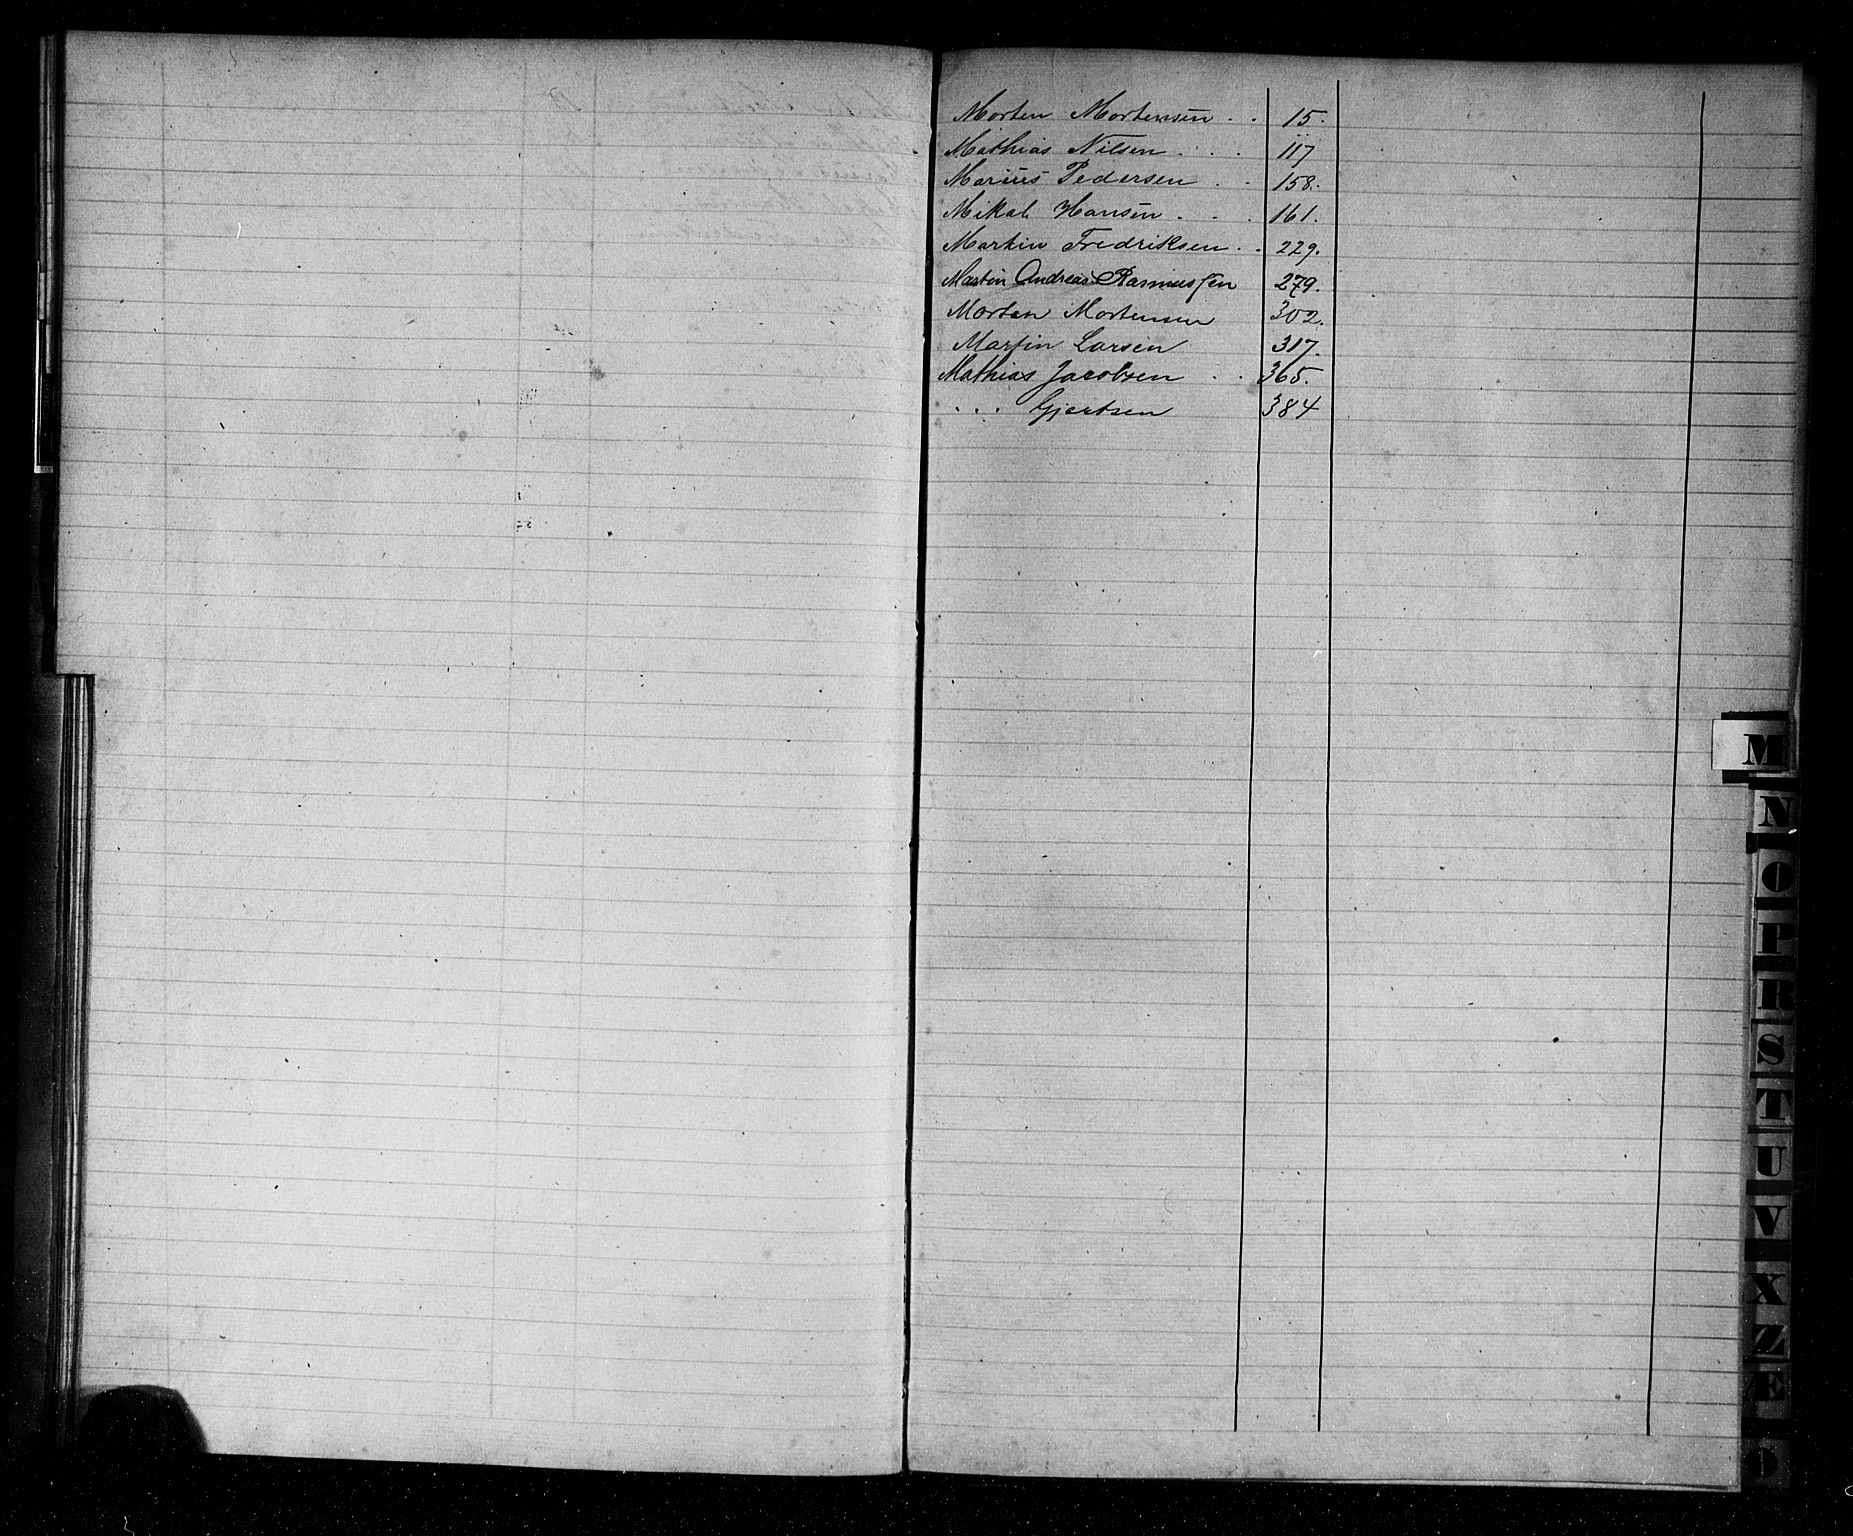 Morten Mortensen . . 15.
Mathias Nilsen . . . 117
Marius Pedersen . . 158.
Mikal Hansen . . . 161.
Martin Fredriksen . . 229.
Martin Andreas Rasmussen 279.
Morten Mortensen 302.
Martin Larsen 317.
Mathias Jacobsen . . 365.
. . . Gjertsen 384
M
N
O
P
R
S
T
U
V
X
Z
Æ
Ø